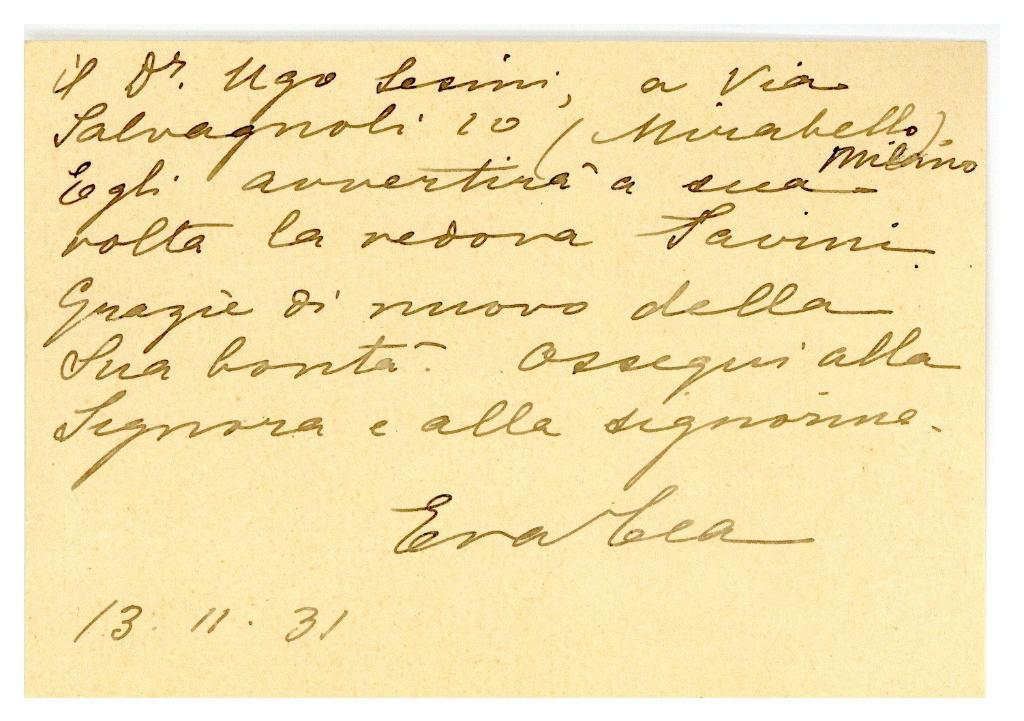 il Dr. Ugo Sesini, a Via
Salvagnoli 10 (Mirabello)
Milano
Egli avvertirà a sua
volta la vedova Savini.
Grazie di nuovo della
Sua bontà. Ossequi alla
Signora e alla signorina.
Eva Tea
13. 11. 31